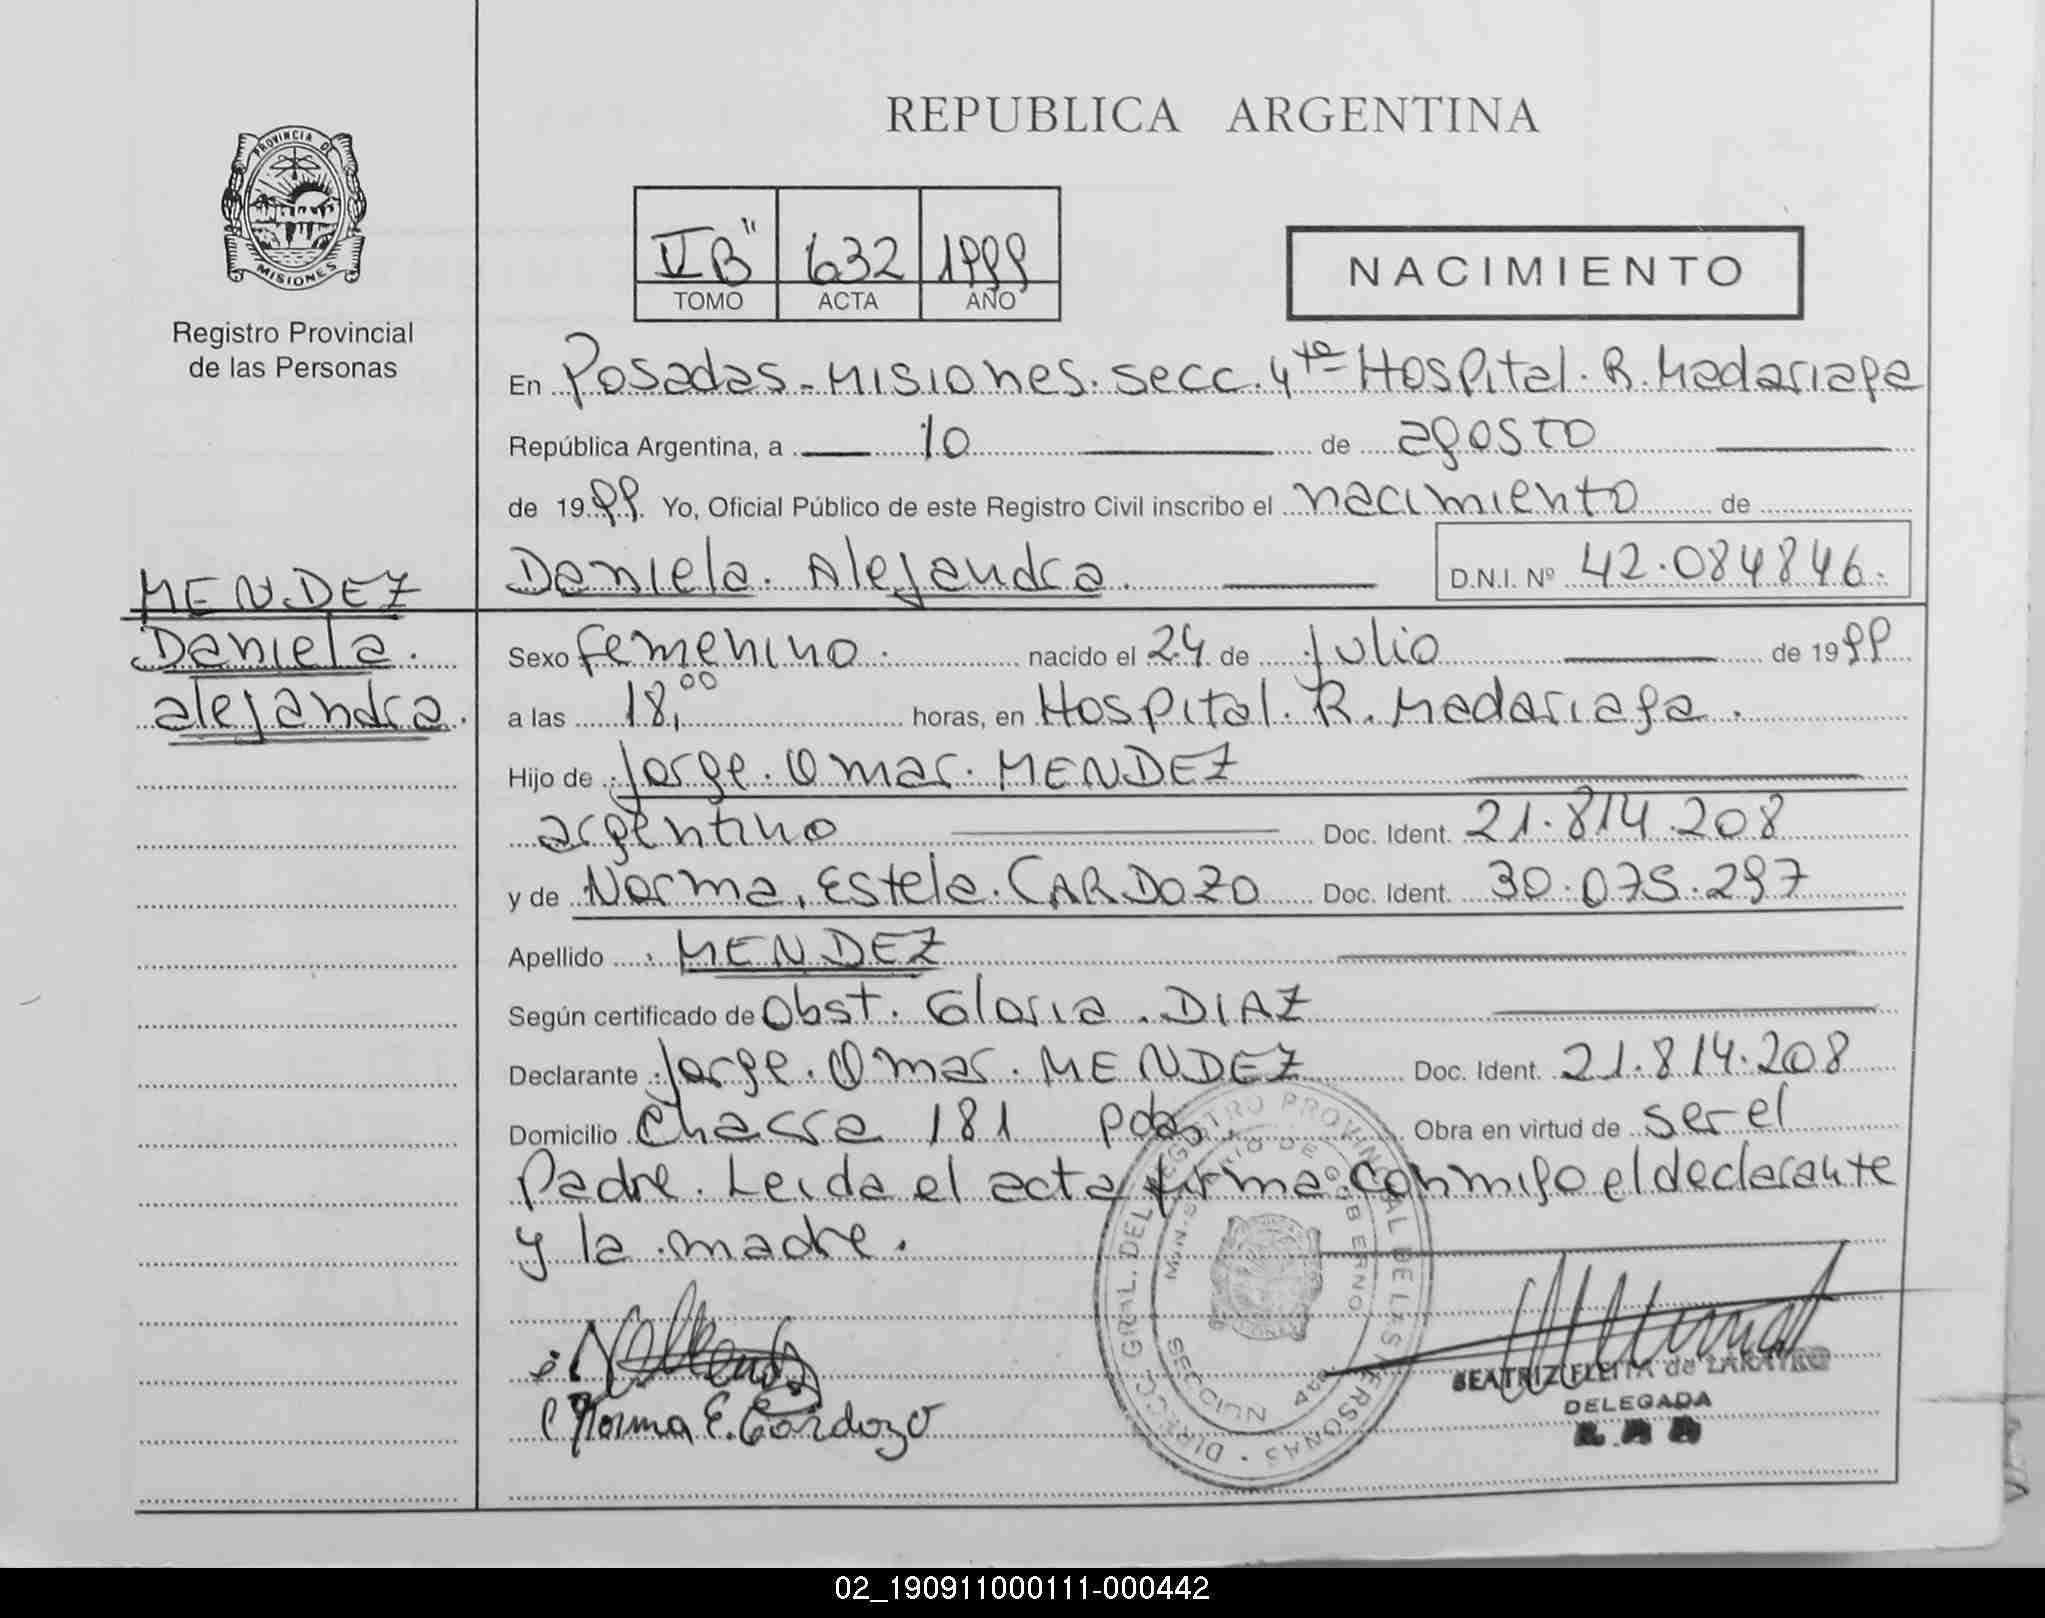 REPUBLICA ARGENTINA
PROVINCIA DE
MISIONES
Registro Provincial
de las Personas
V B" 632 1999
TOMO ACTA AÑO
NACIMIENTO
En Posadas - Misiones. secc. 4ta Hospital. R. Madariaga
República Argentina, a 10 de agosto
de 1999 Yo, Oficial Público de este Registro Civil inscribo el nacimiento de
Daniela. Alejandra. D.N.I. Nº 42.084846.
MENDEZ
Daniela.
alejandra.
Sexo femenino. nacido el 24 de julio de 1999
a las 18,00 horas, en Hospital. R. Madariaga.
Hijo de Jorge. Omar. MENDEZ
argentino Doc. Ident. 21.814.208
y de Norma. Estela. CARDOZO Doc. Ident. 30.075.297
Apellido MENDEZ
Según certificado de Obst. Gloria. DIAZ
Declarante Jorge. Omar. MENDEZ Doc. Ident. 21.814.208
Domicilio Chacra 181 pdas, Obra en virtud de ser el
Padre. Leida el acta firma conmigo el declarante
y la madre.
DIRECC. GRAL. DEL REGISTRO PROVINCIAL DE LAS PERSONAS
MINISTERIO DE GOBIERNO
SECCION 4ta.
Norma E. Cardozo
BEATRIZ FLEITA de
DELEGADA
02_190911000111-000442